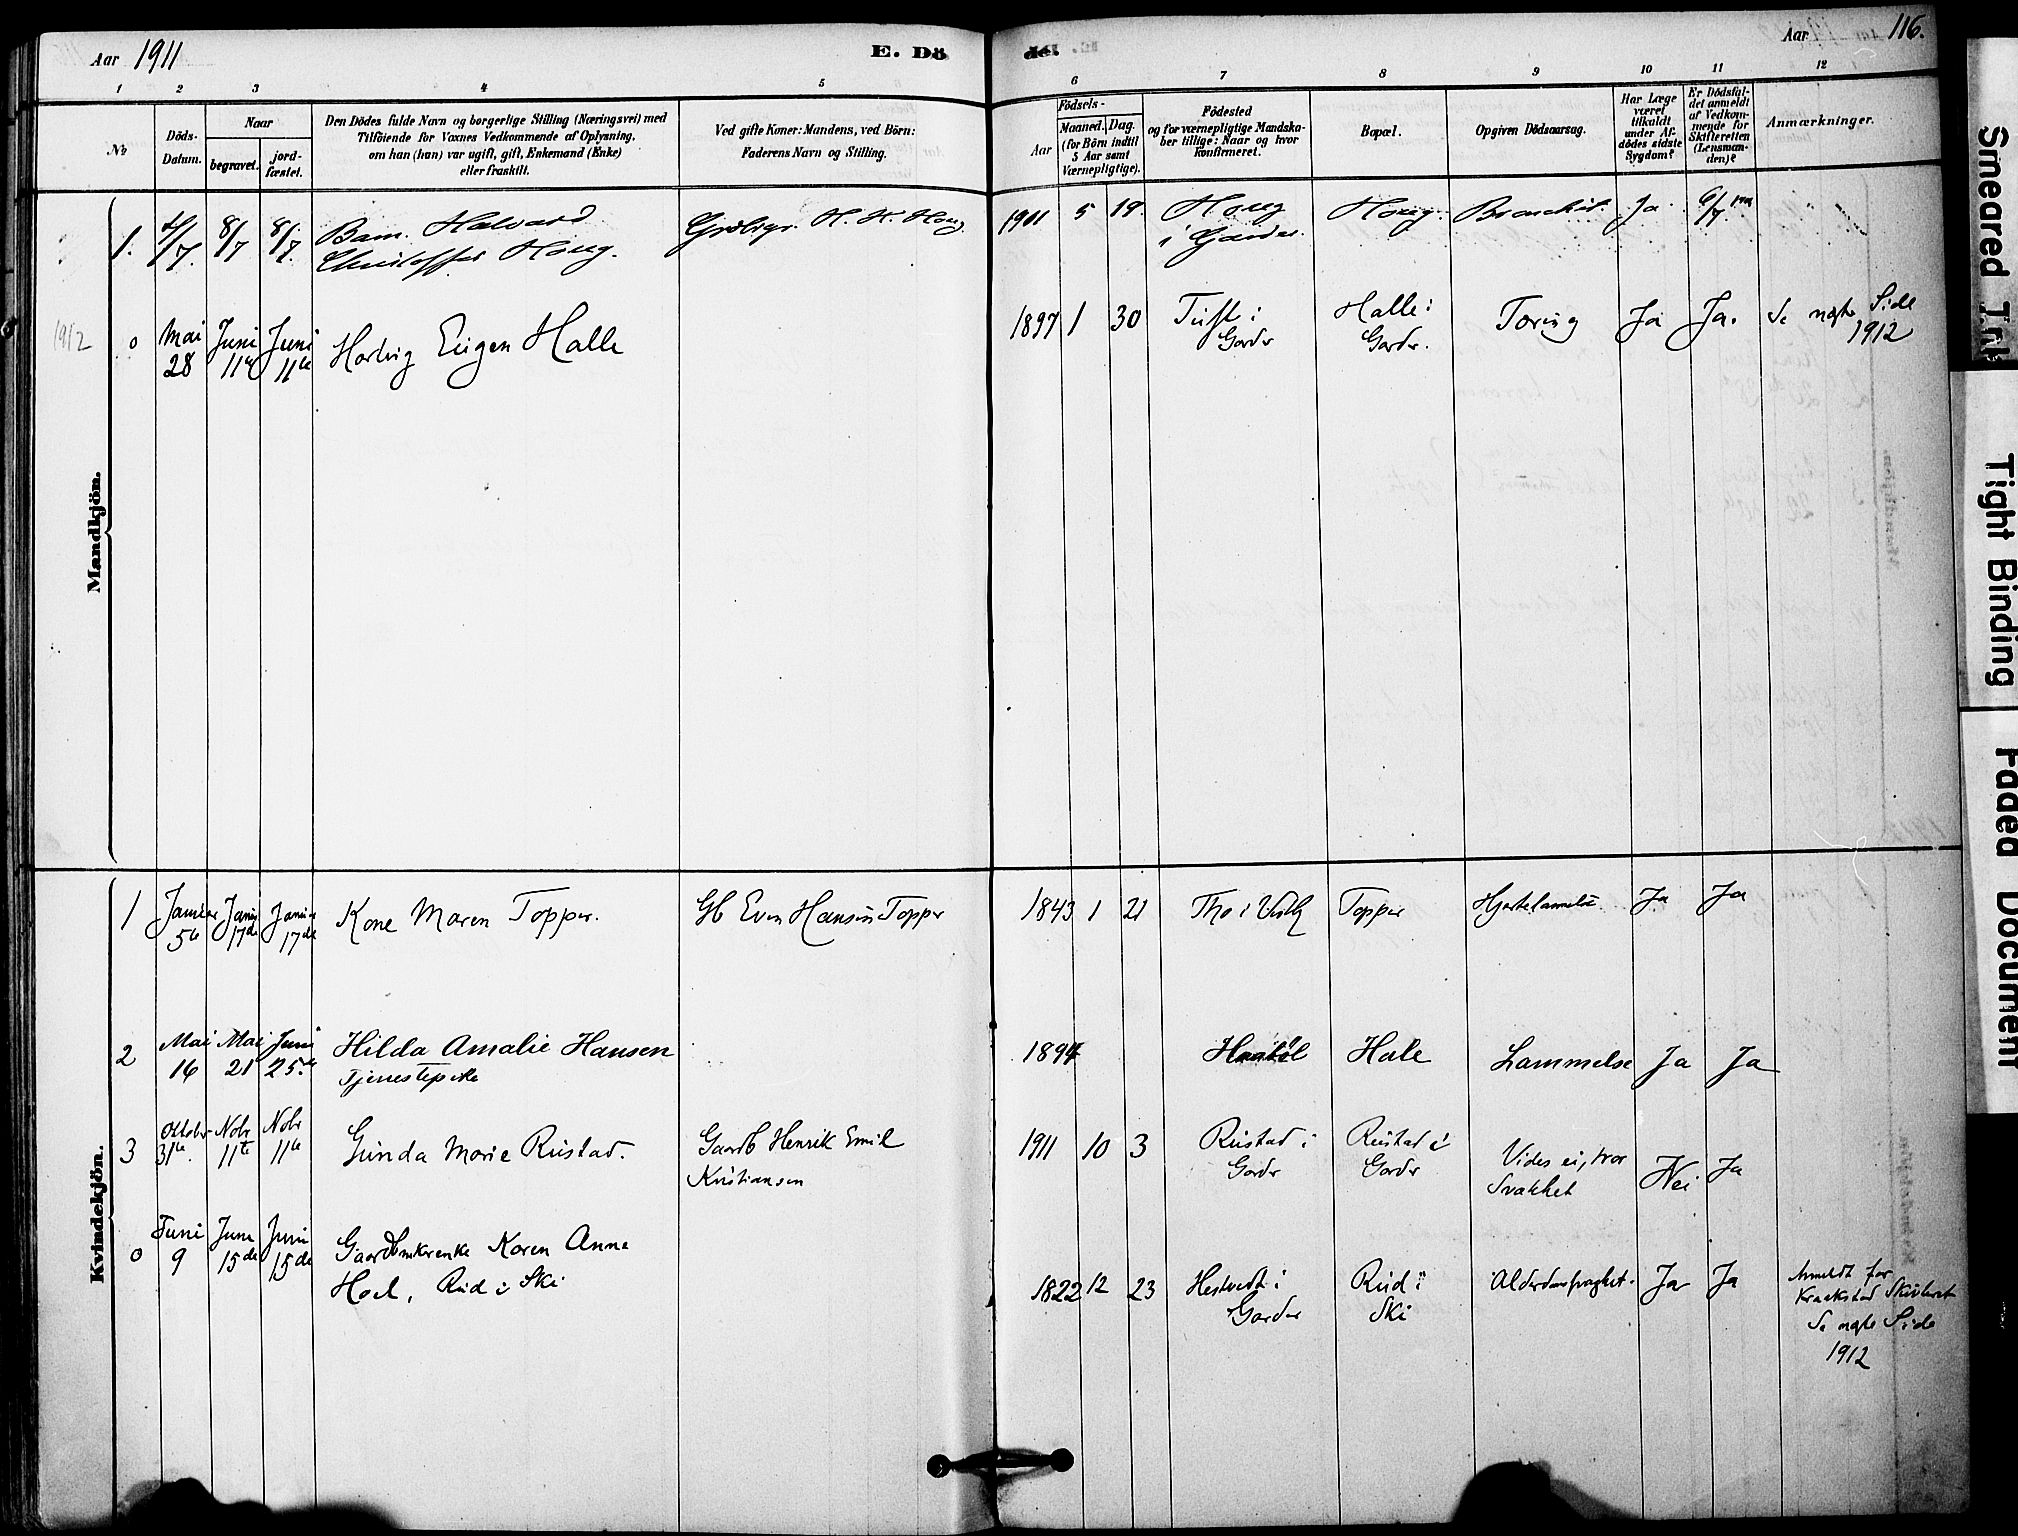 Aar 1911
E. Dö
del.
Aar
116.
1 2 3 4 5 6 7 8 9 10 11 12
No
Döds-
Datum.
Naar
begravet.
jord-
fæstet.
Den Dödes fulde Navn og borgerlige Stilling (Næringsvei) med
Tilföiende for Voxnes Vedkommende af Oplysning,
om han (hun) var ugift, gift, Enkemand (Enke)
eller fraskilt.
Ved gifte Koner: Mandens, ved Börn:
Faderens Navn og Stilling.
Födsels-
Aar
Maaned. Dag.
(for Börn indtil
5 Aar samt
Værnepligtige).
Födested
og for værnepligtige Mandska-
ber tillige: Naar og hvor
konfirmeret.
Bopæl.
Opgiven Dödsaarsag.
Har Læge
været
tilkaldt
under Af-
dödes sidste
Sygdom?
Er Dödsfal-
det anmeldt
af Vedkom-
mende for
Skifteretten
(Lensman-
den)?
Anmærkninger.
Mandkjön.
1. 4/7. 8/7 8/7 Barn. Halvard Gmbsgr. H. H. Haug 1901 5 19. Haug Haug Bronchit. Ja 6/7
Christoffer Haug. i Gjarder.
1912
0 Mai Juni Juni Hartvig Eugen Halle 1897 1 30 Tuft i Halle i Tæring Ja Ja. Se næste Side
28 11te 11te Garder Garder. 1912
Kvindekjön.
1 Januar Januar Januar Kone Maren Topper. Gb Even Hansen Topper 1843 1 21 Tho i Topper Hjertelammelse Ja Ja
5te 17de 17de
2 Mai Mai Juni Hilda Amalie Hansen 1894 Hale Lammelse Ja Ja
16 21 25de Tjenestepike
3 Oktober Nobr Nobr Gunda Marie Rustad. Gaardb Henrik Emil 1911 10 3 Rustad i Rustad i Vides ei, tror Nei Ja
31te 11te 11te Kristiansen Garder Garder Svakhet
0 Juni Juni Juni Karen Anne
9 15de 15de Hoel, Rud i Ski 1822 12 23 Hestvedt i Rud i Alderdomssvaghet. Ja Ja Anmeldt for
Garder Ski Kraakstad Skifteret
Se næste Side
1912
Smeared Ink
Tight Binding
Faded Document